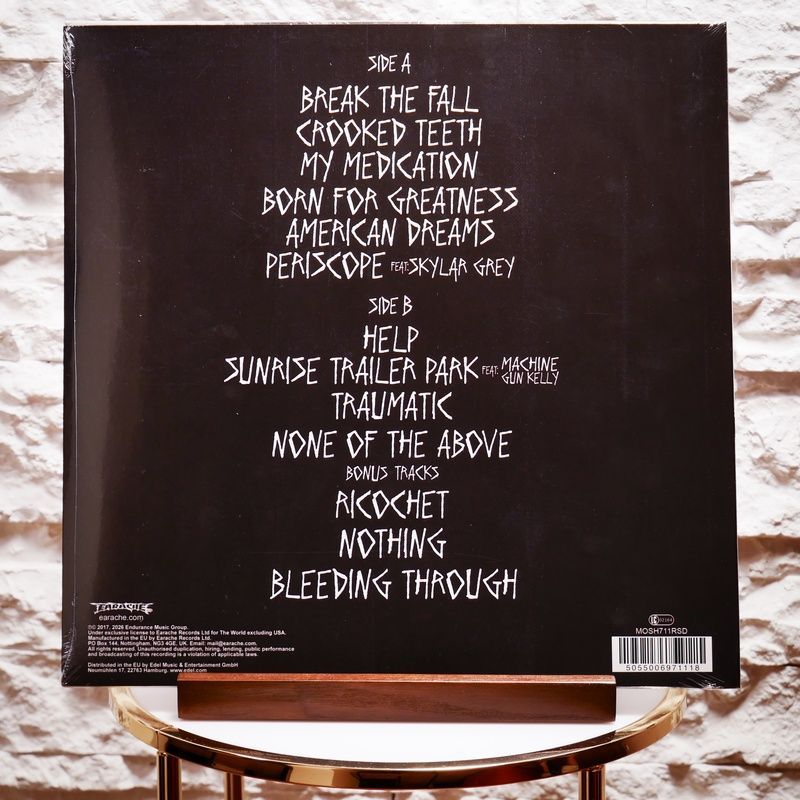 SIDE A
BREAK THE FALL
CROOKED TEETH
MY MEDICATION
BORN FOR GREATNESS
AMERICAN DREAMS
PERISCOPE FEAT: SKYLAR GREY
SIDE B
HELP
SUNRISE TRAILER PARK FEAT: MACHINE GUN KELLY
TRAUMATIC
NONE OF THE ABOVE
BONUS TRACKS
RICOCHET
NOTHING
BLEEDING THROUGH
EARACHE
earache.com
℗© 2017, 2026 Endurance Music Group.
Under exclusive license to Earache Records Ltd for The World excluding USA.
Manufactured in the EU by Earache Records Ltd.
PO Box 144, Nottingham, NG3 4GE, UK. Email: mail@earache.com.
All rights reserved. Unauthorised duplication, hiring, lending, public performance
and broadcasting of this recording is a violation of applicable laws.
Distributed in the EU by Edel Music & Entertainment GmbH
Neumühlen 17, 22763 Hamburg. www.edel.com
02164
MOSH711RSD
5055006971118